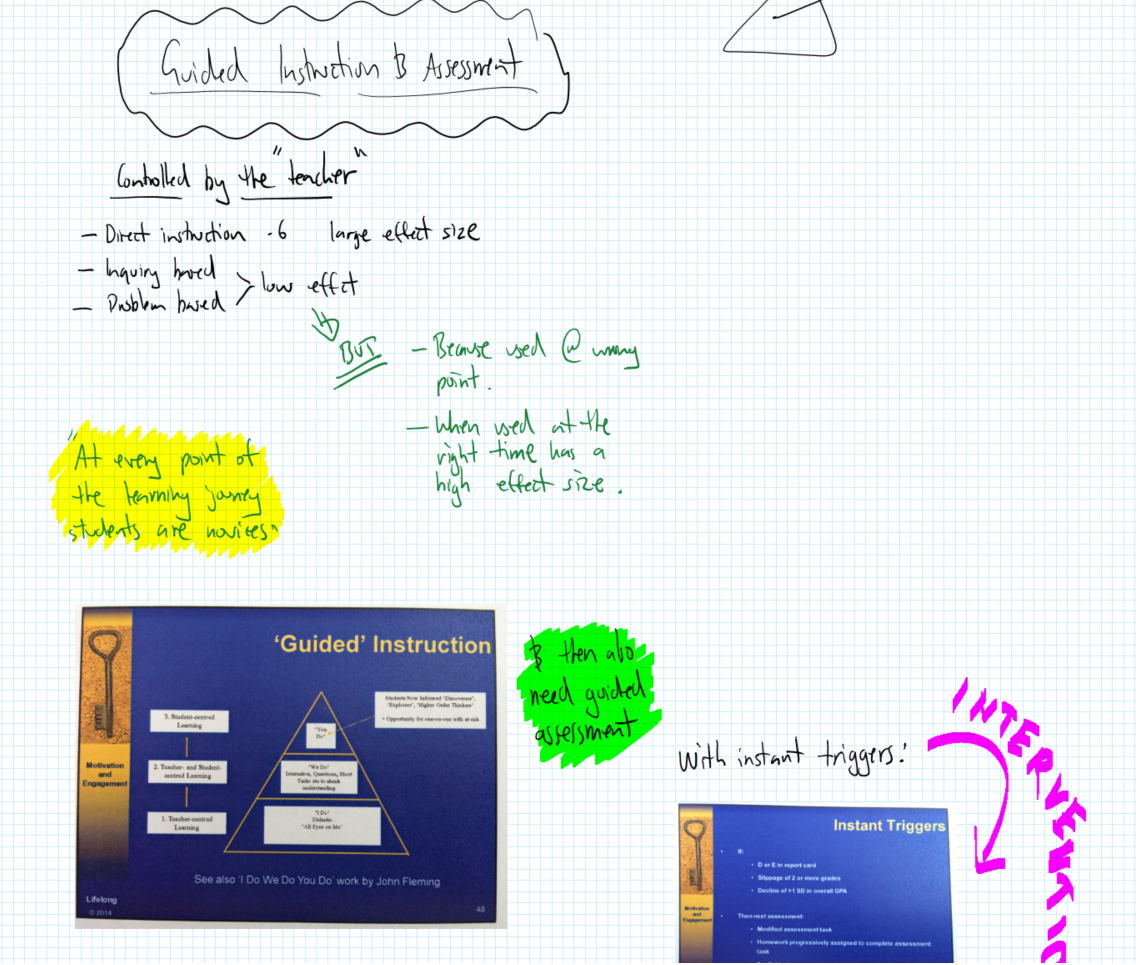 Guided Instruction & Assessment
Controlled by the "teacher"
— Direct instruction .6 large effect size
— Inquiry based
— Problem based
> low effct
BUT
— Because used @ wrong
point.
— When used at the
right time has a
high effect size.
"At every point of
the learning jouney
students are novices"
'Guided' Instruction
Students Now Informed 'Discoverers',
'Explorers', 'Higher Order Thinkers'
+ Opportunity for one-on-one with at-risk
3. Student-centred
Learning
"You
Do"
2. Teacher- and Student-
centred Learning
"We Do"
Interactive, Questions, Short
Tasks etc to check
understanding
1. Teacher-centred
Learning
"I Do"
Didactic
"All Eyes on Me"
Motivation
and
Engagement
See also 'I Do We Do You Do' work by John Fleming
Lifelong
© 2014
48
& then also
need guided
assessment
With instant triggers:
INTERVENTIO
Instant Triggers
• If:
• D or E in report card
• Slippage of 2 or more grades
• Decline of >1 SD in overall GPA
Motivation
and
Engagement
Then next assessment:
• Modified assessment task
• Homework progressively assigned to complete assessment
task